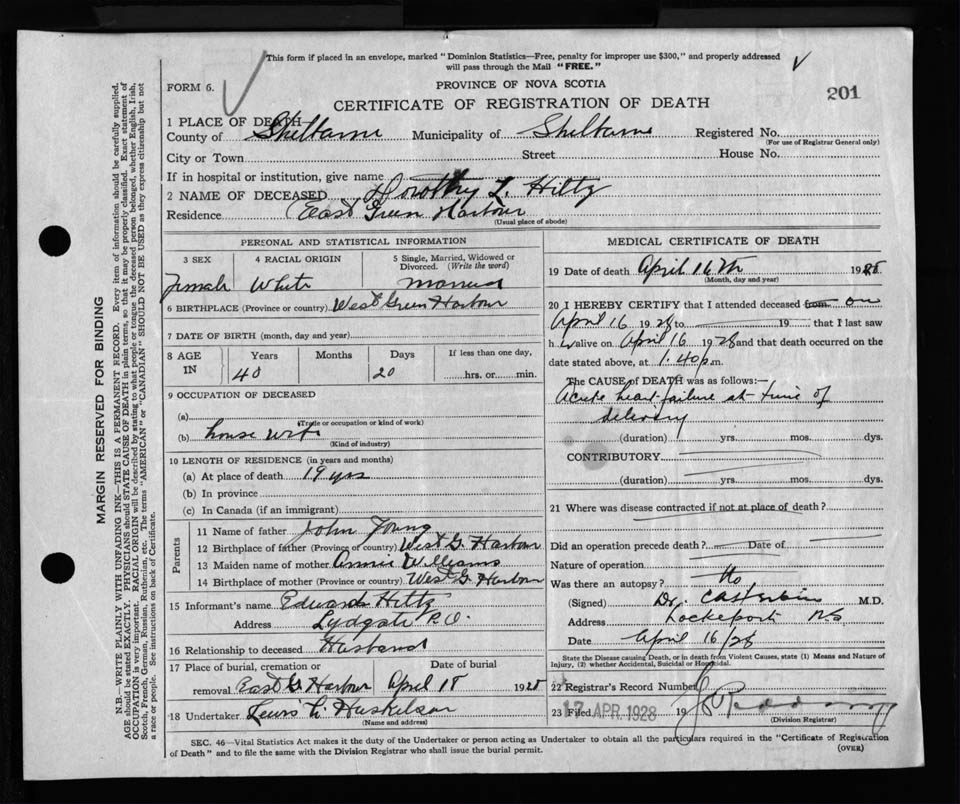 This form if placed in an envelope, marked "Dominion Statistics—Free, penalty for improper use $300," and properly addressed
will pass through the Mail "FREE."
FORM 6.
PROVINCE OF NOVA SCOTIA
CERTIFICATE OF REGISTRATION OF DEATH
201
1 PLACE OF DEATH
County of Shelburne Municipality of Shelburne Registered No.
(For use of Registrar General only)
City or Town Street House No.
If in hospital or institution, give name
2 NAME OF DECEASED Dorothy L. Hiltz
Residence East Green Harbour
(Usual place of abode)
PERSONAL AND STATISTICAL INFORMATION
3 SEX 4 RACIAL ORIGIN 5 Single, Married, Widowed or Divorced. (Write the word)
Female White Married
6 BIRTHPLACE (Province or country) West Green Harbour
7 DATE OF BIRTH (month, day and year)
8 AGE IN Years Months Days If less than one day,
40 20 hrs. or min.
9 OCCUPATION OF DECEASED
(a)
(Trade or occupation or kind of work)
(b) house
(Kind of industry)
10 LENGTH OF RESIDENCE (in years and months)
(a) At place of death 19 yrs
(b) In province
(c) In Canada (if an immigrant)
Parents
11 Name of father John Young
12 Birthplace of father (Province or country) West G. Harbour
13 Maiden name of mother Annie Williams
14 Birthplace of mother (Province or country) West G. Harbour
15 Informant's name Edward Hiltz
Address Lydgate P.O.
16 Relationship to deceased Husband
17 Place of burial, cremation or Date of burial
removal East G. Harbour April 18 1928
18 Undertaker Lewis L. Huskilson
(Name and address)
MEDICAL CERTIFICATE OF DEATH
19 Date of death April 16th 1928
(Month, day and year)
20 I HEREBY CERTIFY that I attended deceased from on
April 16 1928 to 19 that I last saw
h alive on April 16 1928 and that death occurred on the
date stated above, at 1.40 p.m.
The CAUSE of DEATH was as follows:—
Acute heart failure at time of
delivery
(duration) yrs. mos. dys.
CONTRIBUTORY
(duration) yrs. mos. dys.
21 Where was disease contracted if not at place of death?
Did an operation precede death? Date of
Nature of operation
Was there an autopsy? No
(Signed) Dr. M.D.
Address Lockeport NS
Date April 16/28
State the Disease causing Death, or in death from Violent Causes, state (1) Means and Nature of
Injury, (2) whether Accidental, Suicidal or Homicidal.
22 Registrar's Record Number
23 Filed 17 APR. 1928 19
(Division Registrar)
SEC. 46—Vital Statistics Act makes it the duty of the Undertaker or person acting as Undertaker to obtain all the particulars required in the "Certificate of Registration
of Death" and to file the same with the Division Registrar who shall issue the burial permit.
(OVER)
MARGIN RESERVED FOR BINDING
N.B.—WRITE PLAINLY WITH UNFADING INK—THIS IS A PERMANENT RECORD. Every item of information should be carefully supplied.
AGE should be stated EXACTLY. PHYSICIANS should STATE CAUSE OF DEATH in plain terms, so that it may be properly classified. Exact statement of
OCCUPATION is very important. RACIAL ORIGIN will be described by stating to what people or tongue the deceased person belonged, whether English, Irish,
Scotch, French, German, Russian, Ruthenian, etc. The terms "AMERICAN" or "CANADIAN" SHOULD NOT BE USED as they express citizenship but not
a race or people. See instructions on back of Certificate.